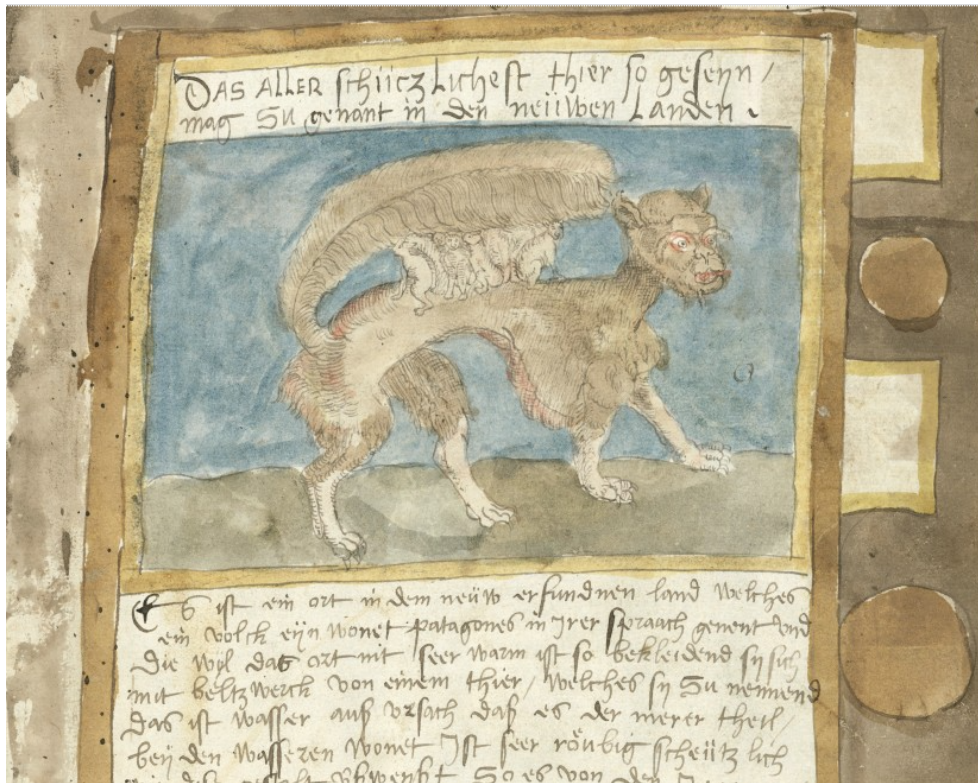 DAS ALLER schüczlichest thier so geseyn /
mag Su genant in den neüwen Landen .
ES ist ein ort in dem neüw erfundnen land welches
ein volck eyn wonet patagones in Irer spraach genent vnd
die wyl das ort nit seer warm ist so bekleidend sy sich
mit beltzwerck von einem thier / welches sy Su nennend
das ist wasser auß vrsach daß es der merer theil /
bey den wasseren wonet Ist seer röubig scheützlich
So es von den